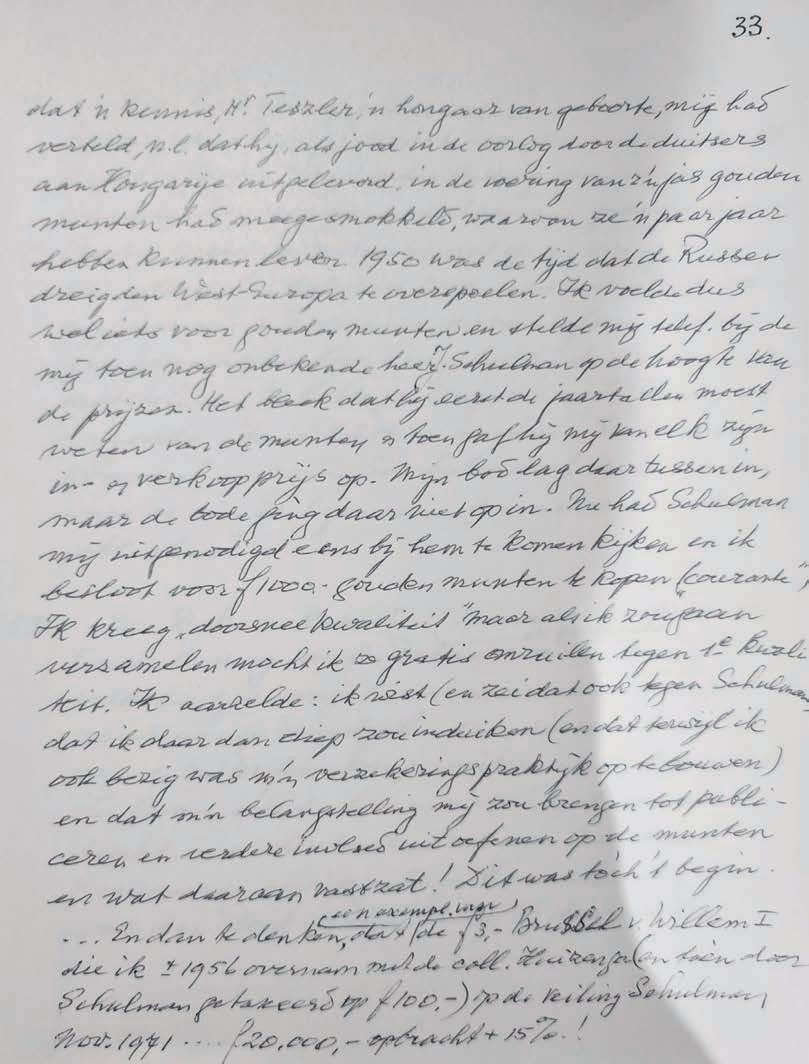 33.
dat 'n kennis, Hr. Teszler, 'n hongaar van geboorte, mij had
verteld, n.l. dat hij, als jood in de oorlog door de duitsers
aan Hongarije uitgeleverd, in de voering van z'n jas gouden
munten had meegesmokkeld, waarvan ze 'n paar jaar
hebben kunnen leven. 1950 was de tijd dat de Russen
dreigden West-Europa te overspoelen. Ik voelde dus
wel iets voor gouden munten en stelde mij telef. bij de
mij toen nog onbekende heer J. Schulman op de hoogte van
de prijzen. Het bleek dat hij eerst de jaartallen moest
weten van de munten en toen gaf hij mij van elk zijn
in- en verkoopprijs op. Mijn bod lag daar tussen in,
maar de bode ging daar niet op in. Nu had Schulman
mij uitgenodigd eens bij hem te komen kijken en ik
besloot voor f 1000.- gouden munten te kopen (courante",
Ik kreeg „doorsnee kwaliteit" maar als ik zou gaan
verzamelen mocht ik ze gratis omruilen tegen 1e kwali-
teit. Ik aarzelde: ik wist (en zei dat ook tegen Schulman
dat ik daar dan diep zou induiken (en dat terwijl ik
ook bezig was m'n verzekeringspraktijk op te bouwen)
en dat m'n belangstelling mij zou brengen tot publi-
ceren en verdere invloed uitoefenen op de munten
en wat daaraan vastzat! Dit was tòch 't begin.
... En dan te denken, dat (een exempl. van) de f 3,- Brussel v. Willem I
die ik ± 1956 overnam met de coll. Huizenga (en toèn door
Schulman getaxeerd op f 100.-) op de veiling Schulman
Nov. 1971 .... f 20.000,- opbracht + 15%.!